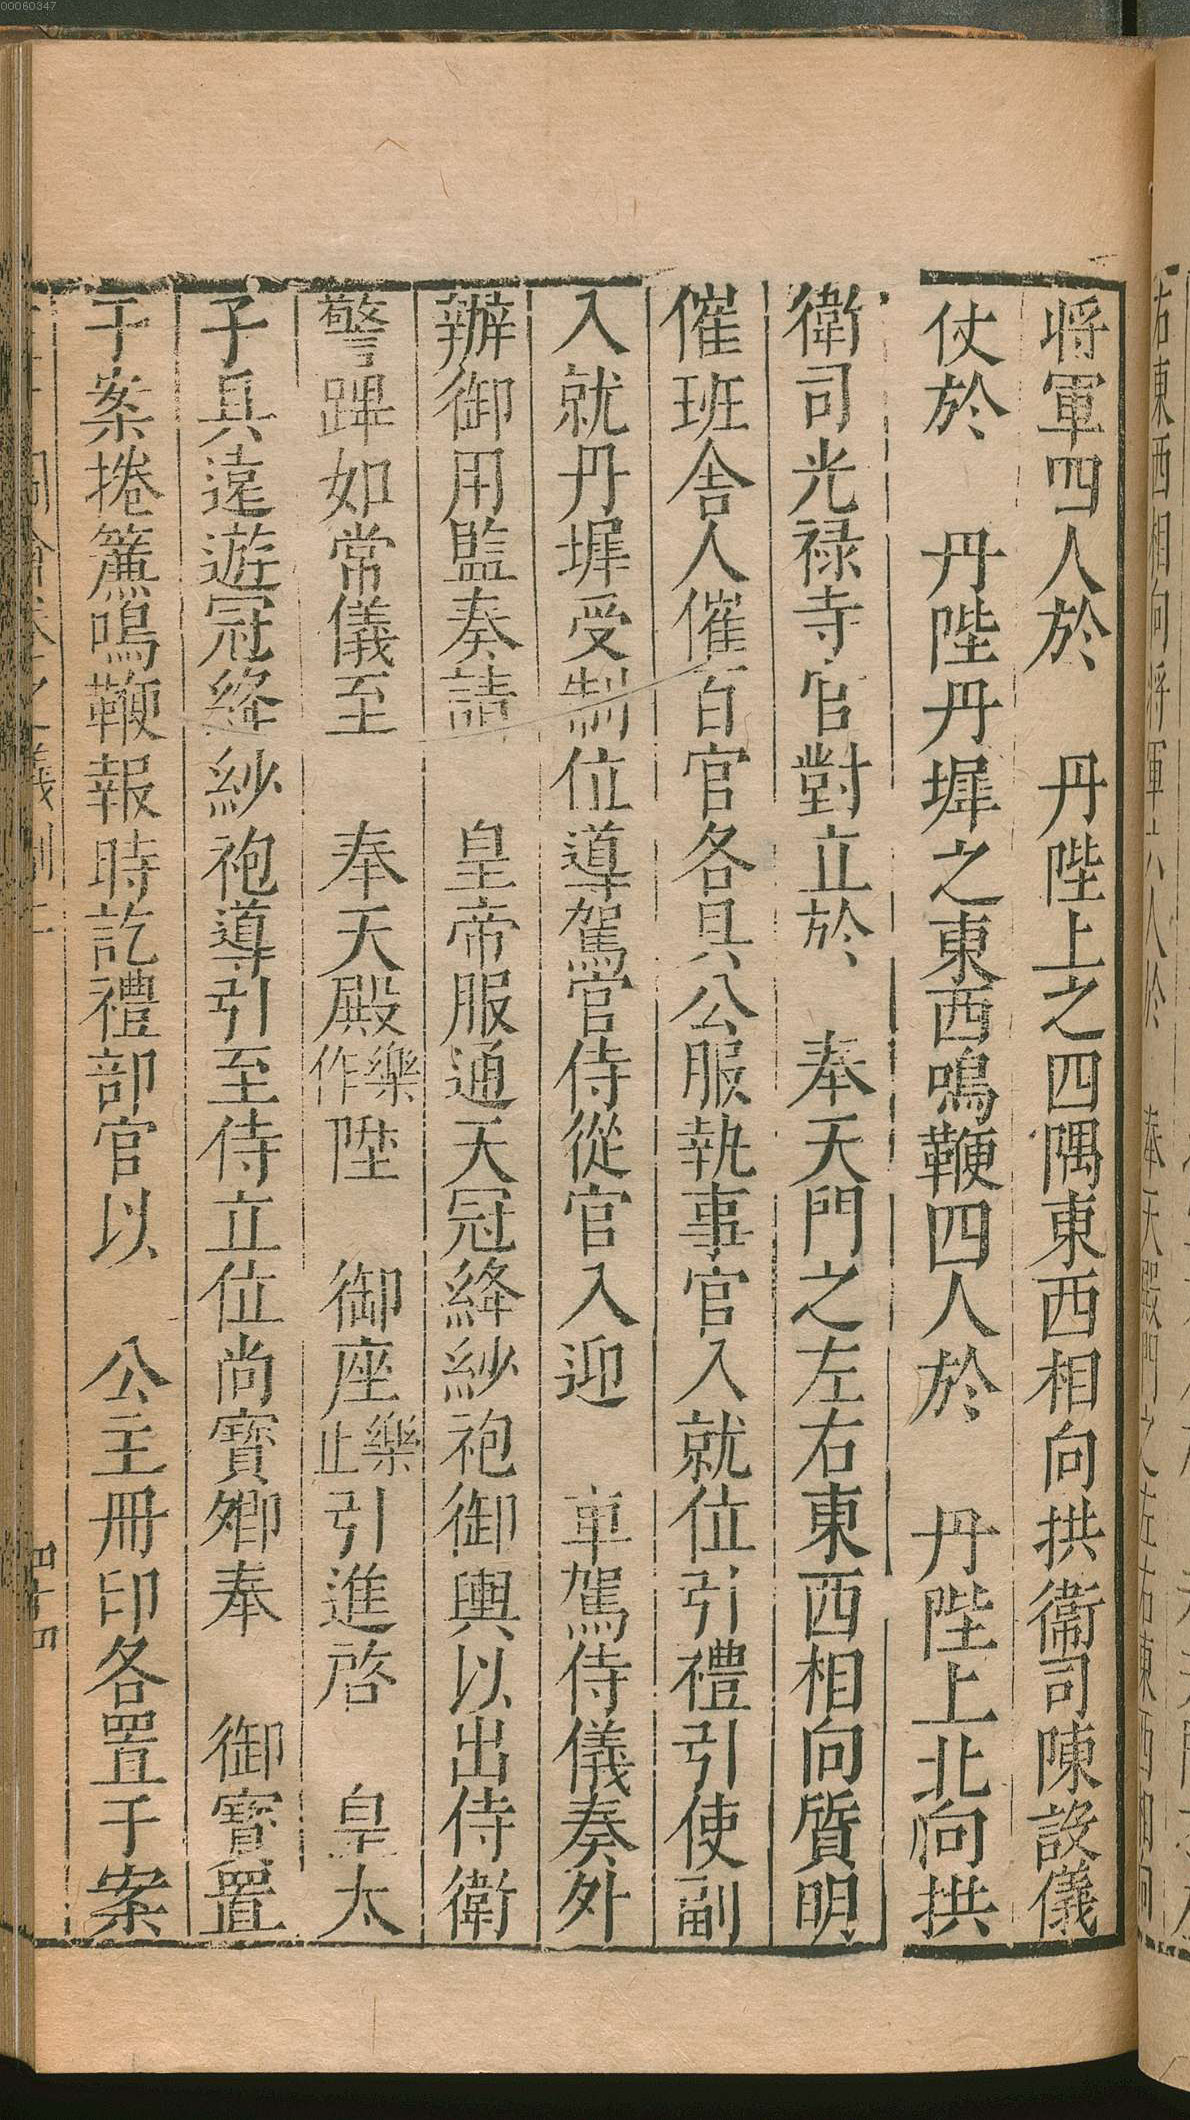 00060347
將軍四人於　丹陛上之四隅東西相向拱衞司陳設儀
仗於　丹陛丹墀之東西鳴鞭四人於　丹陛上北向拱
衛司光禄寺官對立於　奉天門之左右東西相向質明
催班舍人催百官各具公服執事官入就位引禮引使副
入就丹墀受制位導駕官侍從官入迎　車駕侍儀奏外
辦御用監奏請　皇帝服通天冠絳紗袍御輿以出侍衛
警蹕如常儀至　奉天殿樂作陞　御座樂止引進啓　皇太
子具遠遊冠絳紗袍導引至侍立位尚寳卿奉　御寳置
于案捲簾鳴鞭報時訖禮部官以　公主冊印各置于案
四十四